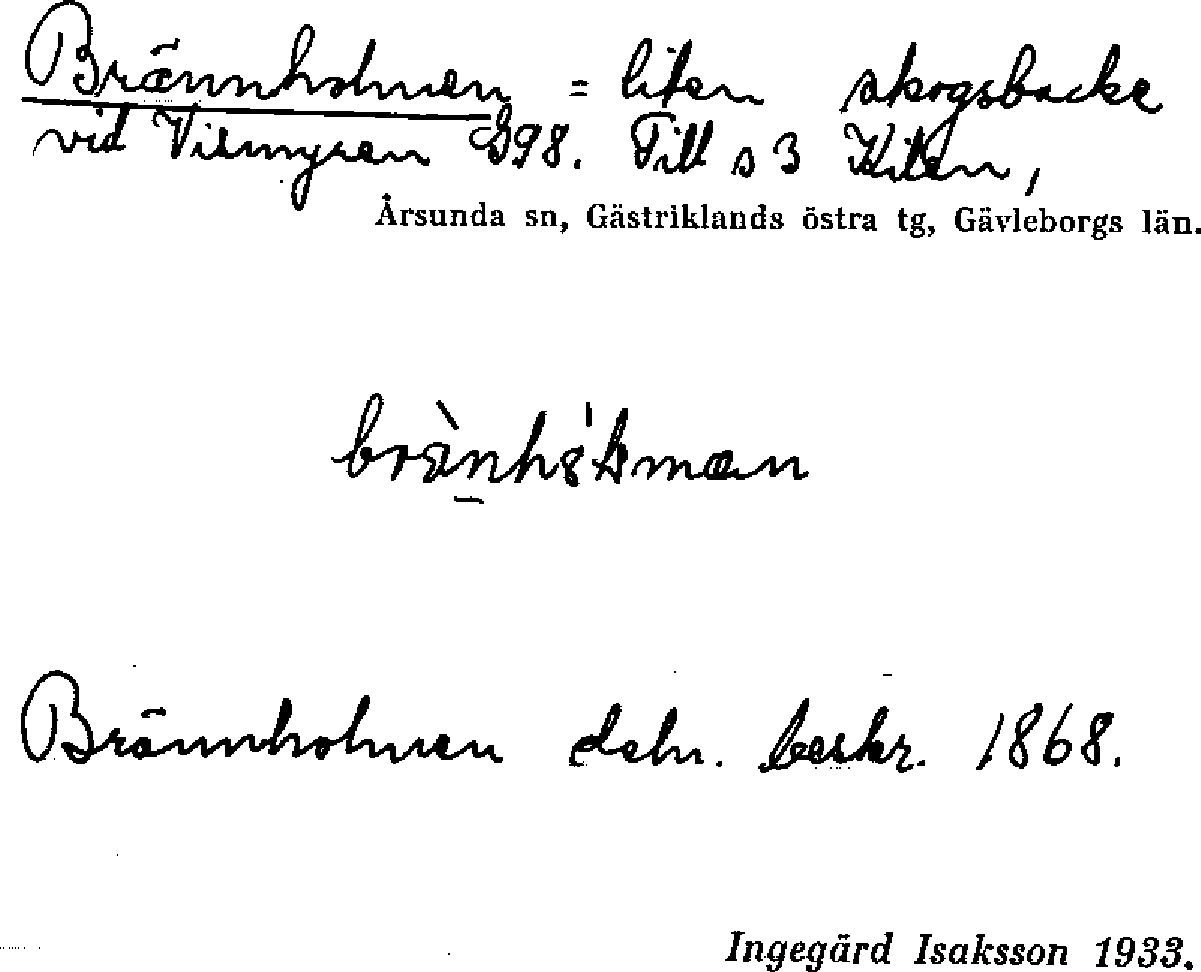 Brännholmen = liten skogsbacke
vid Vismyren G98. Till s 3 Kilen,
Årsunda sn, Gästriklands östra tg, Gävleborgs län.
Brännholmen deln. beskr. 1868.
Ingegärd Isaksson 1933.